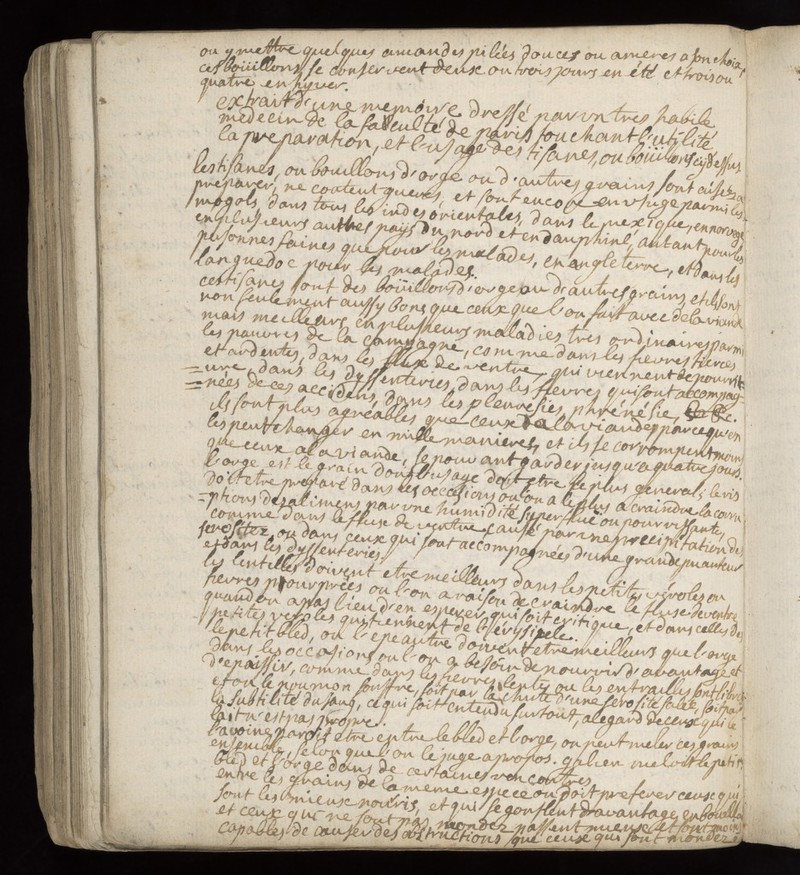 ou y mettre quelques amandes pilées douces ou ameres a son choix,
ces boüillons, se conservent deux ou trois jours en été et trois ou
quatre en hyver.
extrait d'une memoire dressé par un tres habile
medecin de la faculté de paris touchant l'utilité
la preparation, et l'usage des tisanes, ou boüillons cy dessus
les tisanes, ou bouillons d'orge ou d'autres grains sont aisez a
preparer, ne coutent gueres, et sont encore en usage parmi les
mogols, dans tous les indes orientales, dans le mexique, en norvege
en plusieurs autres pays du nord et en dauphiné, autant pour les
personnes saines que pour les malades, en angleterre, et dans les
languedoc pour les malades.
ces tisanes sont des boüillons d'orge ou d'autres grains et ils sont
non seulement aussy bons que ceux que l'on fait avec de la viande
mais meilleurs en plusieurs maladies tres ordinaires parmi
les pauvres de la campagne, comme dans les fievres tierces
et ardentes, dans les flux de ventre, qui viennent de pourrit-
=ure, dans les dyssenteries, dans les fievres qui sont accompag-
=nées de ces accidens, dans les pleuresies, phrenesie, &c.
ils sont plus agréables que ceux de la viande parce qu'on
les peut changer en mille manieres, et ils se corrompent moins
que ceux a la viande, se pouvant garder jusqu'a quatre jours.
l'orge est le grain dont l'usage doit etre le plus general; le ris
doit etre preparé dans les occasions ou on a le plus a craindre la corru
=ptions des alimens par une humidité superfluë ou pourrissante,
comme dans le fluse de ventre causé par une precipitation des
serositez, ou dans ceux qui sont accompagnées d'une grande puanteur
et dans les dyssenteries.
les lentilles doivent etre meilleurs dans les petites véroles ou
fievres pourprées ou l'on a raison de craindre le fluse de ventre
quand on a pas lieu d'en esperer qui soit critique, et dans celles des
petites veroles qui tiennent de l'erysipele.
le petit bled, ou l'epeautre doivent etre meilleurs que l'orge
dans les occasions ou l'on a besoin de nourrir d'avantage et
d'epaissir, comme dans les fievres lentes ou les entrailles sont libres
et ou le poumon souffre, soit par la chute d'une serosité salée, soit par
la subtilité du sang, ce qui soit entendu surtout, a l'egard de ceux qui le
lait n'est pas propre.
l'avoine paroit etre entre le bled et l'orge, on peut meler ces grains
ensemble, selon que l'on le juge a propos. galien meloit le petit
bled et l'orge dans de certaines rencontres.
entre les grains de la meme espece on doit preferer ceux qui
sont les mieux nouris, et qui se gonflent d'avantage en bouillant
et ceux qui ne sont pas mondez passent mieux et sont moins
capables de causer des obstructions que ceux qui sont mondez